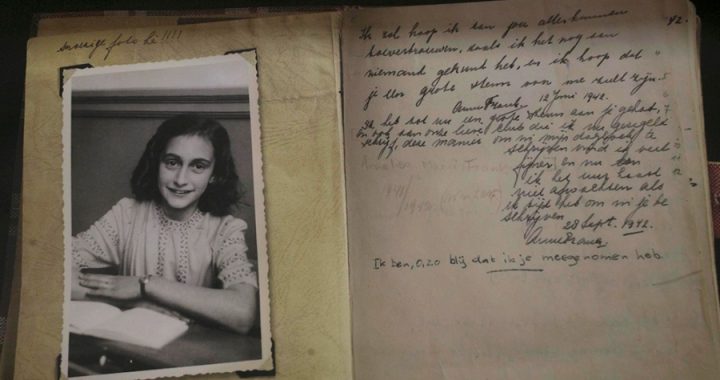 Snoezige foto hè!!!!
Ik zal hoop ik aan jou alles kunnen
toevertrouwen, zoals ik het nog aan
niemand gekund heb, en ik hoop dat
je een grote steun voor me zult zijn.
Anne Frank. 12 Juni 1942.
Ik heb tot nu een grote steun aan je gehad,
en ook aan onze lieve club die ik nu geregeld
schrijf, deze manier om in mijn dagboek te
schrijven vind ik veel
fijner en nu kan
ik het uur haast
niet afwachten als
ik tijd heb om in je te
schrijven
28 Sept. 1942.
Anne Frank
Ik ben, o, zo blij dat ik je meegenomen heb